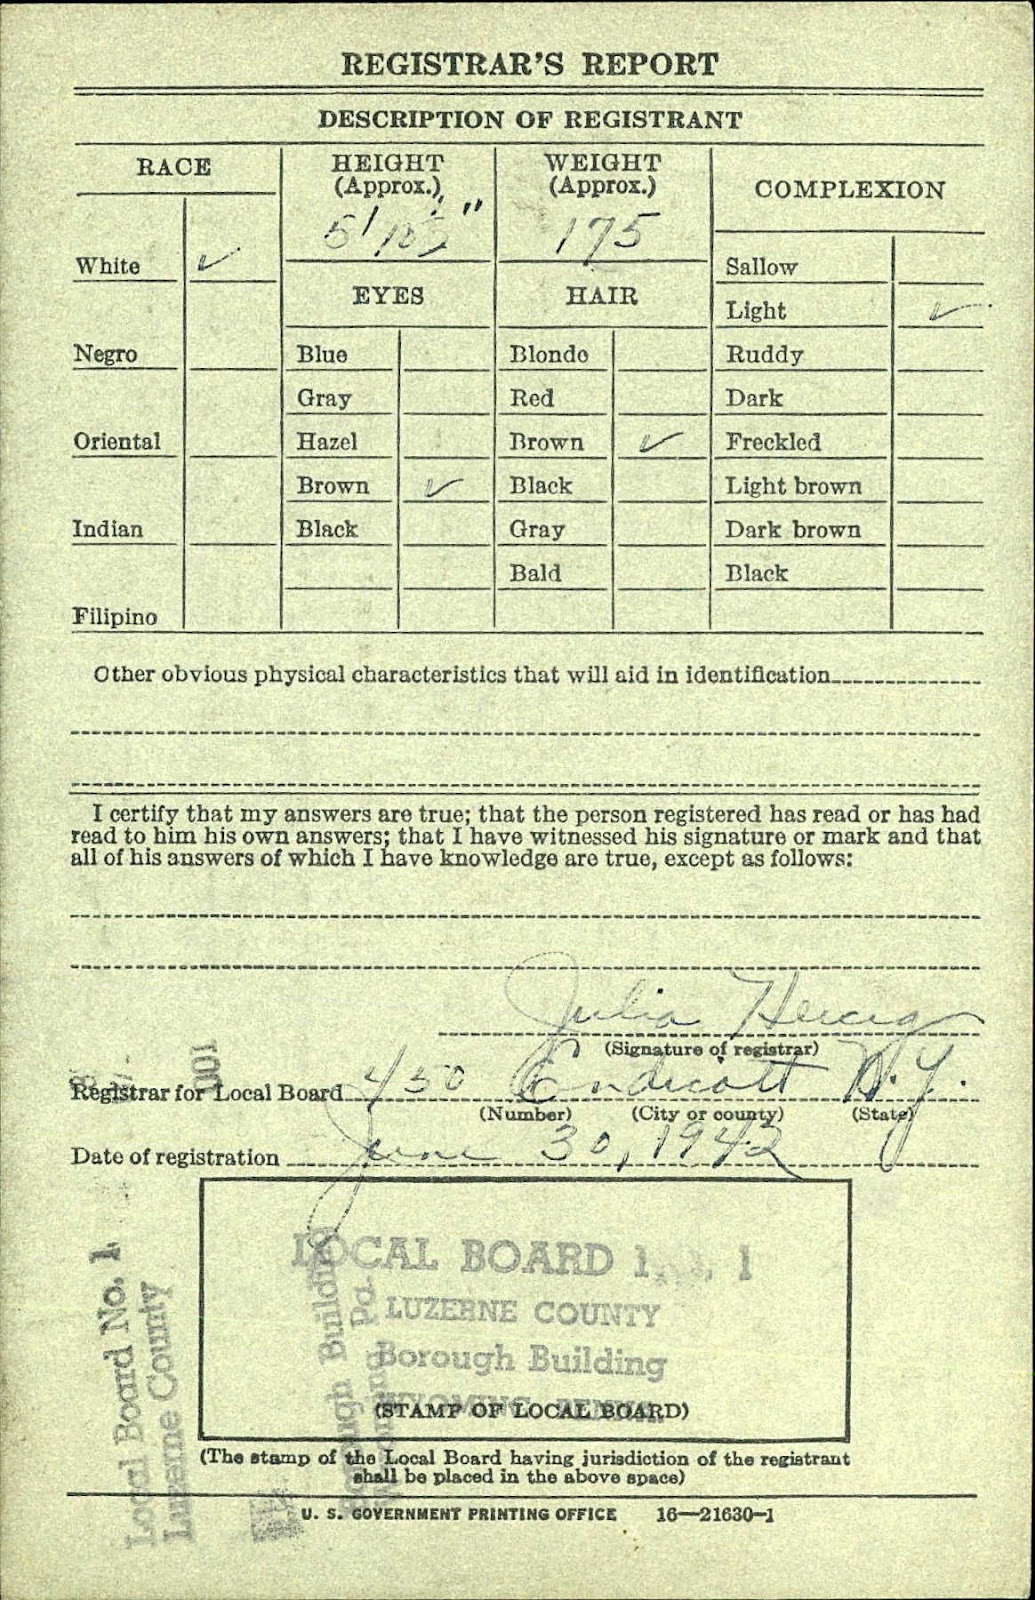 REGISTRAR'S REPORT
DESCRIPTION OF REGISTRANT
RACE
HEIGHT
(Approx.)
WEIGHT
(Approx.)
COMPLEXION
175
White ✓
Sallow
EYES
HAIR
Light ✓
Negro
Blue
Blonde
Ruddy
Gray
Red
Dark
Oriental
Hazel
Brown ✓
Freckled
Brown ✓
Black
Light brown
Indian
Black
Gray
Dark brown
Bald
Black
Filipino
Other obvious physical characteristics that will aid in identification
I certify that my answers are true; that the person registered has read or has had
read to him his own answers; that I have witnessed his signature or mark and that
all of his answers of which I have knowledge are true, except as follows:
Julia Herceg
(Signature of registrar)
Registrar for Local Board 450 Endicott N.Y.
(Number) (City or county) (State)
Date of registration June 30, 1942
LOCAL BOARD
LUZERNE COUNTY
Borough Building
(STAMP OF LOCAL BOARD)
(The stamp of the Local Board having jurisdiction of the registrant
shall be placed in the above space)
U. S. GOVERNMENT PRINTING OFFICE 16—21630-1
Local Board No. 1
Luzerne County
Borough Building
Pa.